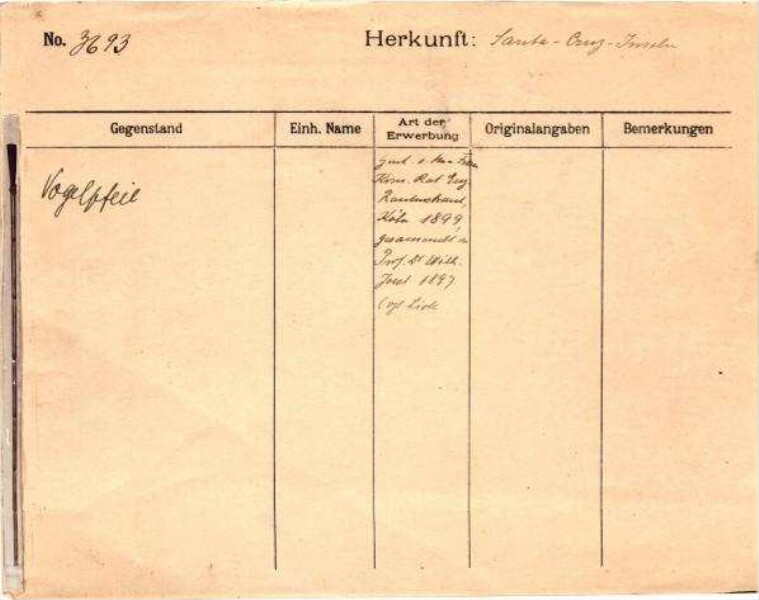 No. 3693 Herkunft: Santa-Cruz-Inseln
Gegenstand Einh. Name Art der Erwerbung Originalangaben Bemerkungen
Vogelpfeil
Frau
Kom. Rat Eug.
Rautenstrauch,
Köln 1899,
gesammelt v.
Prof. Dr Wilh.
Joest 1897
(vgl. Liste